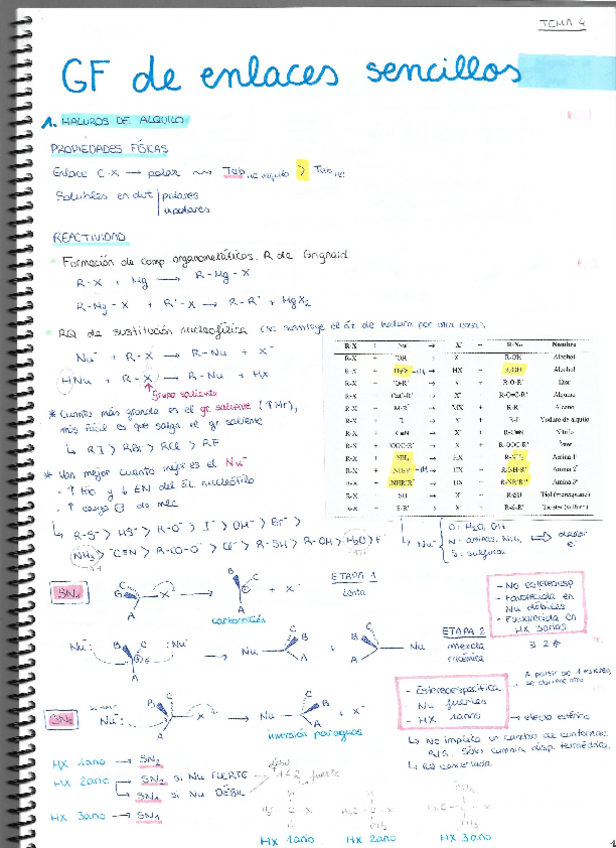 TEMA 4
GF de enlaces sencillos
1. HALUROS DE ALQUILO
PROPIEDADES FÍSICAS
Enlace C-X → polar ⇝ Teb > Teb
Solubles en dvt polares
apolares
REACTIVIDAD
Formación de comp. organometálicos. R de Gringnard
R-X + Mg → R-Mg-X
R-Mg-X + R'-X → R-R' + MgX₂
RQ de sustitución nucleofílica (se sustituye el át de haluro por otra cosa)
Nu⁻ + R-X → R-Nu + X⁻
HNu + R-X → R-Nu + HX
grupo saliente
* Cuanto más grande es el gr saliente (↑Mr),
más fácil es que salga el gr saliente
↳ RI > RBr > RCl > RF
* Van mejor cuanto mejor es el Nu⁻
· ↑ Mr y ↓ EN del át nucleófilo
· ↑ carga ⊖ de
↳ R-S⁻ > HS⁻ > R-O⁻ > I⁻ > OH⁻ > Br⁻ >
NH₃ > ⁻C≡N > R-CO-O⁻ > Cl⁻ > R-SH > R-OH > H₂O > F⁻
R-X + Nu⁻ → X⁻ + R-Nu Nombre
R-X + ⁻OH → X⁻ + R-OH Alcohol
R-X + H₂O → HX + R-OH Alcohol
R-X + ⁻O-R' → X⁻ + R-O-R' Éter
R-X + ⁻C≡C-R' → X⁻ + R-C≡C-R' Alquino
R-X + M-R' → MX + R-R' Alcano
R-X + I⁻ → X⁻ + R-I Yoduro de alquilo
R-X + ⁻C≡N → X⁻ + R-C≡N Nitrilo
R-X + ⁻OOC-R' → X⁻ + R-OOC-R' Éster
R-X + NH₃ → HX + R-NH₂ Amina 1ª
R-X + NH₂R' → HX + R-NH-R' Amina 2ª
R-X + NHR'R'' → HX + R-NR'R'' Amina 3ª
R-X + ⁻SH → X⁻ + R-SH
R-X + ⁻S-R' → X⁻ + R-S-R'
↳ Nu⁻
O: H₂O, OH
N: aminas, NH₃
S: sulfuros
→ dador e⁻
SN₁
C
B
G
A
X
B
C
A
+ X⁻
carbocatión
ETAPA 1
lenta
- No estereoesp
- Favorecida en
Nu débiles
- Favorecida en
HX 3arios
3 2
Nu:⁻
B
C
A
:Nu⁻
Nu
C
B
A
+
C
B
A
Nu
ETAPA 2
mezcla
racémica
SN₂
Nu:⁻
B
C
A
X
Nu
C
B
A
+ X⁻
inversión paraguas
- Estereoespecífica
- Nu fuertes
- HX 1arios
→ efecto estérico
↳ No implica un cambio de
R/S. Sólo cambia disp.
↳ RQ concertada
HX 1ario → SN₂
HX 2ario → SN₂ si Nu FUERTE
↳ SN₁ si Nu DÉBIL
HX 3ario → SN₁
HX 1ario
HX 2ario
HX 3ario